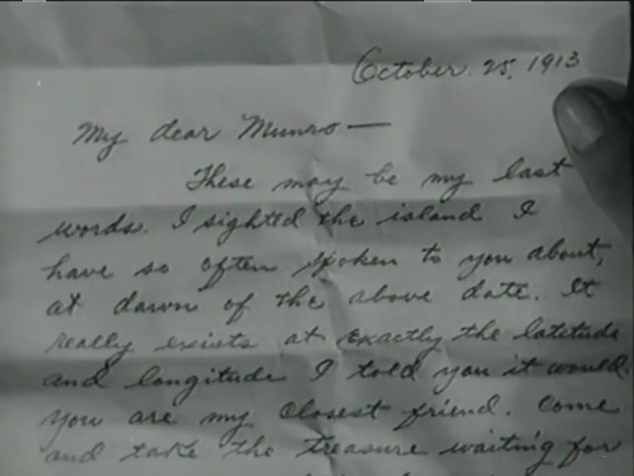 October 25, 1913
My dear Munro —
These may be my last
words. I sighted the island I
have so often spoken to you about,
at dawn of the above date. It
really exists at exactly the latitude
and longitude I told you it would.
you are my closest friend. Come
and take the treasure waiting for